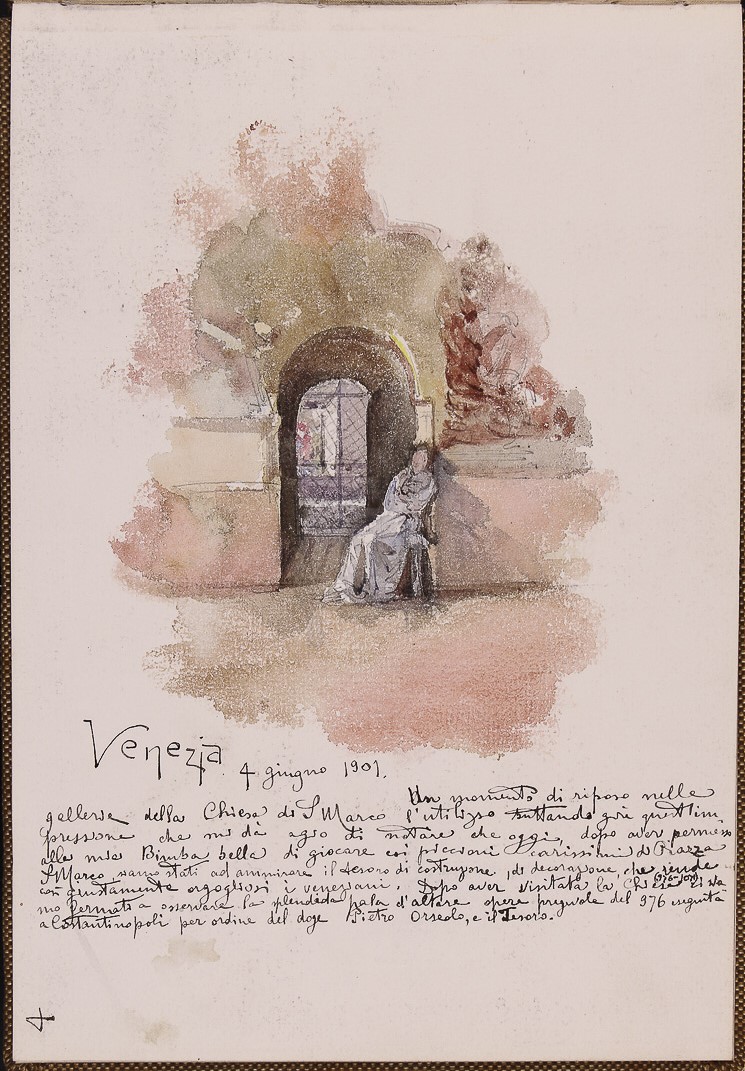 Venezia
4 giugno 1901.
Un momento di riposo nelle
gallerie della Chiesa di S Marco l'utilizzo buttando giù quest'im
pressione che mi dà agio di notare che oggi, dopo aver permesso
alla mia Bimba bella di giocare coi piccioni carissimi di Piazza
S Marco, siamo stati ad ammirare il tesoro di costruzione, di decorazione, che rende
così giustamente orgogliosi i veneziani. Dopo aver visitata la Chiesa ci sia
mo fermati a osservare la splendida pala d'altare opera pregevole del 976 eseguita
a Costantinopoli per ordine del doge Pietro Orseolo, e il Tesoro.